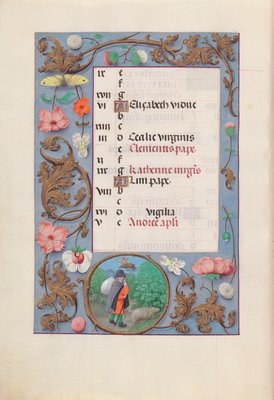 ix e
f
xvii g
vi A Elizabeth vidue
b
xiiii c
iii d Cecilie virginis
e Clementis pape
xi f
g Katherine virgis
A Lini pape
viii b
c
xvi d Vigilia
v e Andree apli